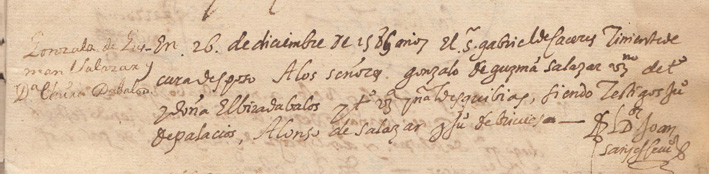 Gonzalo de Guz-
man Salazar y
Dª Elvira Dabalos
En 26. de diciembre de 1586 años El sr. gabriel de Caceres Tiniente de
cura desposo A los señores. gonzalo de guzmã Salazar vzno de to
y doña Elbira dabalos y to vzo y na de esquibias, siendo Testigos Ju
de palacios, Alonso de Salazar y Ju de
El Dor Joan